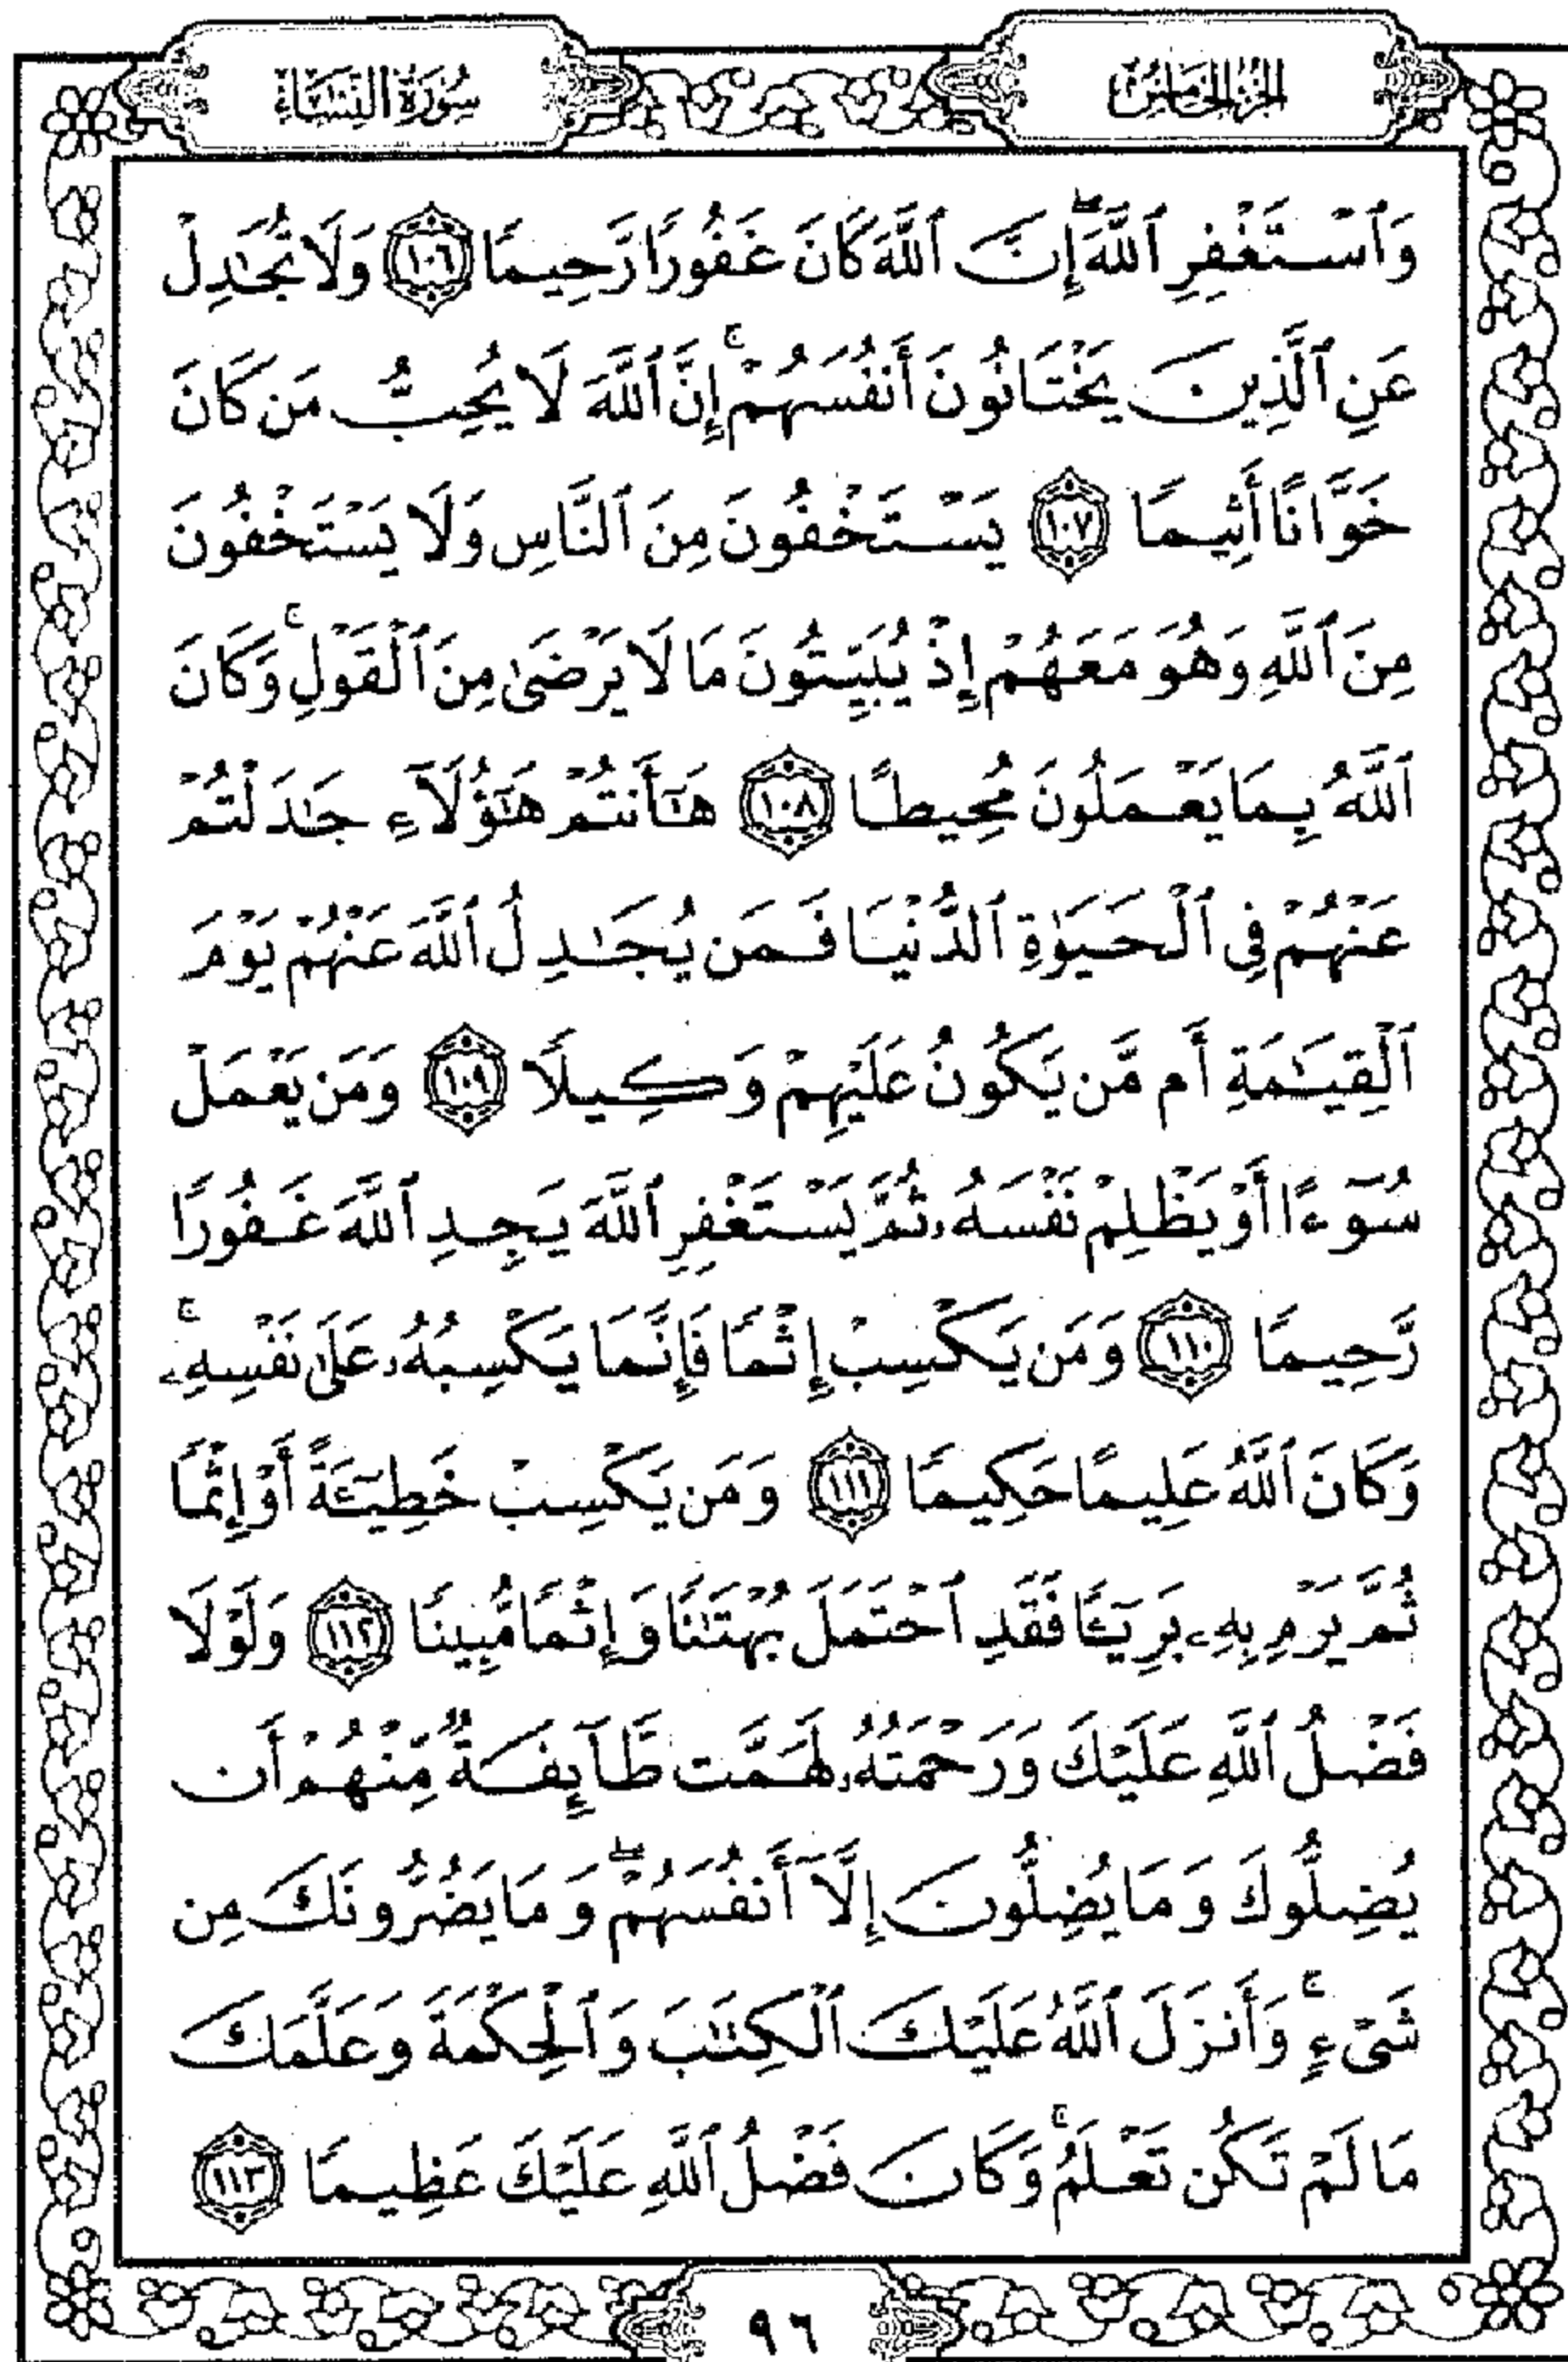 الجزء الخامس
سورة النساء
وَٱسْتَغْفِرِ ٱللَّهَ ۖ إِنَّ ٱللَّهَ كَانَ غَفُورًا رَّحِيمًا ١٠٦ وَلَا تُجَٰدِلْ
عَنِ ٱلَّذِينَ يَخْتَانُونَ أَنفُسَهُمْ ۚ إِنَّ ٱللَّهَ لَا يُحِبُّ مَن كَانَ
خَوَّانًا أَثِيمًا ١٠٧ يَسْتَخْفُونَ مِنَ ٱلنَّاسِ وَلَا يَسْتَخْفُونَ
مِنَ ٱللَّهِ وَهُوَ مَعَهُمْ إِذْ يُبَيِّتُونَ مَا لَا يَرْضَىٰ مِنَ ٱلْقَوْلِ ۚ وَكَانَ
ٱللَّهُ بِمَا يَعْمَلُونَ مُحِيطًا ١٠٨ هَٰٓأَنتُمْ هَٰٓؤُلَآءِ جَٰدَلْتُمْ
عَنْهُمْ فِى ٱلْحَيَوٰةِ ٱلدُّنْيَا فَمَن يُجَٰدِلُ ٱللَّهَ عَنْهُمْ يَوْمَ
ٱلْقِيَٰمَةِ أَم مَّن يَكُونُ عَلَيْهِمْ وَكِيلًا ١٠٩ وَمَن يَعْمَلْ
سُوٓءًا أَوْ يَظْلِمْ نَفْسَهُۥ ثُمَّ يَسْتَغْفِرِ ٱللَّهَ يَجِدِ ٱللَّهَ غَفُورًا
رَّحِيمًا ١١٠ وَمَن يَكْسِبْ إِثْمًا فَإِنَّمَا يَكْسِبُهُۥ عَلَىٰ نَفْسِهِۦ ۚ
وَكَانَ ٱللَّهُ عَلِيمًا حَكِيمًا ١١١ وَمَن يَكْسِبْ خَطِيٓـَٔةً أَوْ إِثْمًا
ثُمَّ يَرْمِ بِهِۦ بَرِيٓـًٔا فَقَدِ ٱحْتَمَلَ بُهْتَٰنًا وَإِثْمًا مُّبِينًا ١١٢ وَلَوْلَا
فَضْلُ ٱللَّهِ عَلَيْكَ وَرَحْمَتُهُۥ لَهَمَّت طَّآئِفَةٌ مِّنْهُمْ أَن
يُضِلُّوكَ وَمَا يُضِلُّونَ إِلَّآ أَنفُسَهُمْ ۖ وَمَا يَضُرُّونَكَ مِن
شَىْءٍ ۚ وَأَنزَلَ ٱللَّهُ عَلَيْكَ ٱلْكِتَٰبَ وَٱلْحِكْمَةَ وَعَلَّمَكَ
مَا لَمْ تَكُن تَعْلَمُ ۚ وَكَانَ فَضْلُ ٱللَّهِ عَلَيْكَ عَظِيمًا ١١٣
٩٦